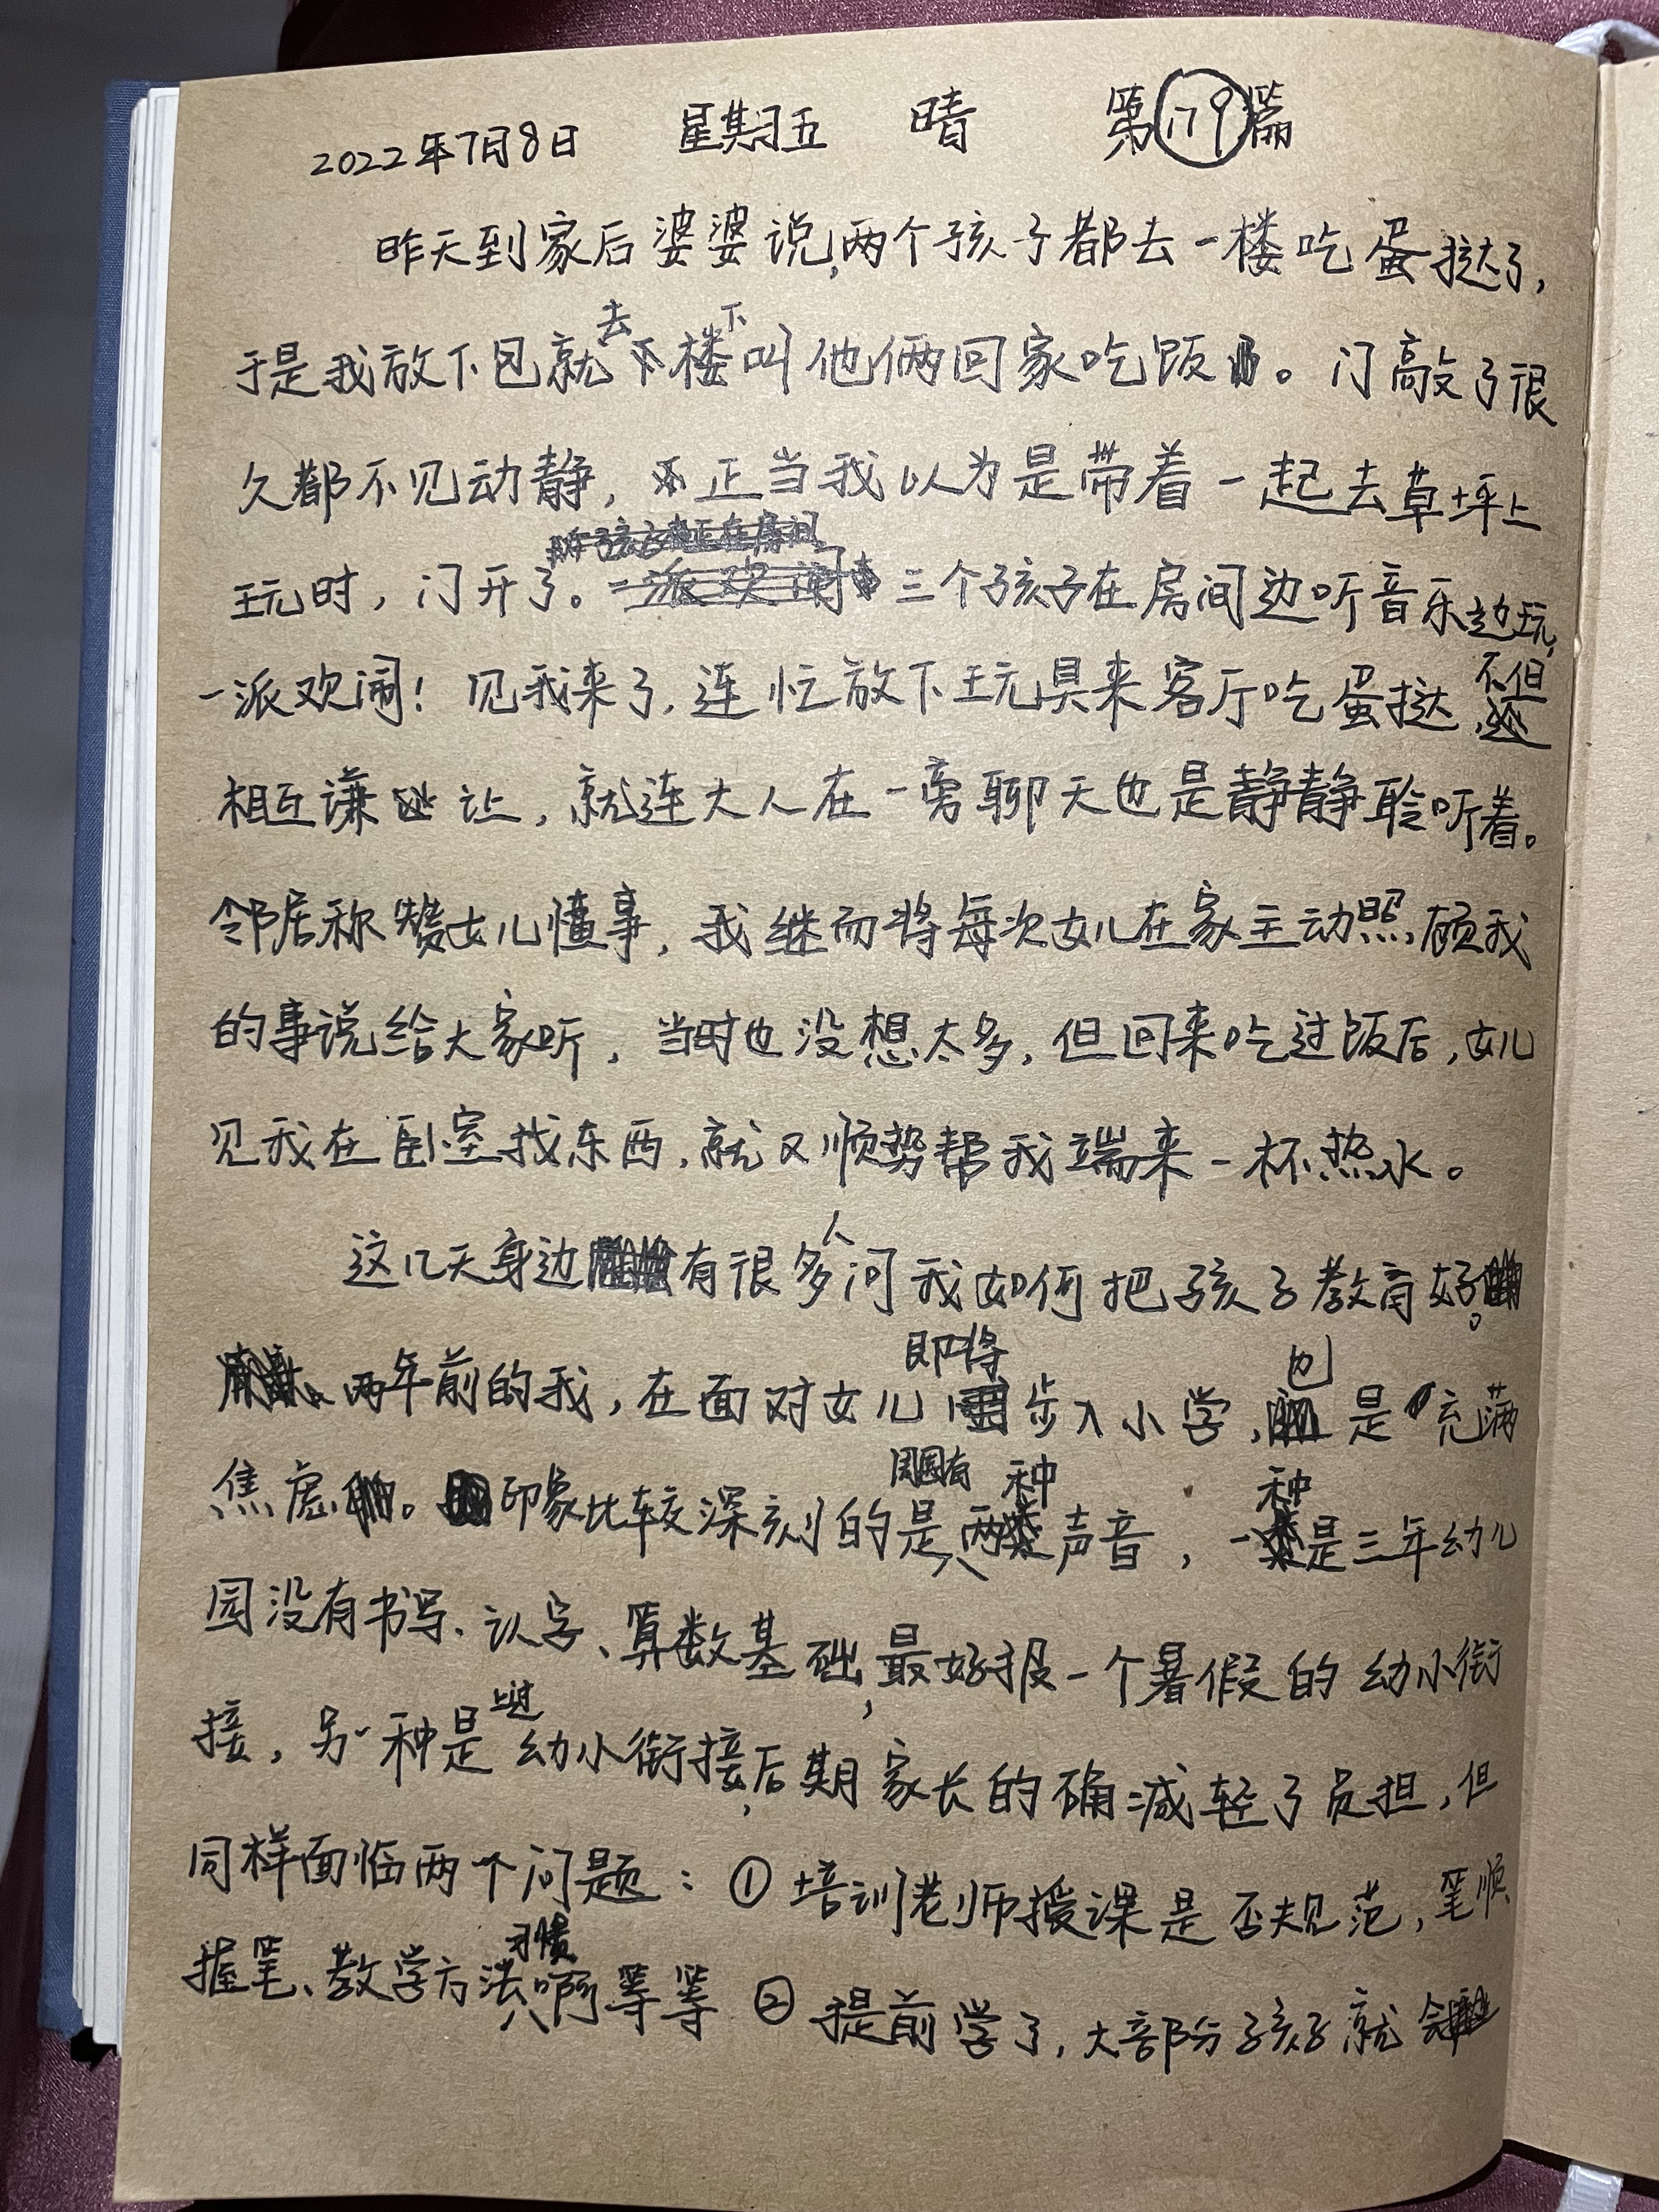 2022年7月8日 星期五 晴 第179篇
昨天到家后婆婆说,两个孩子都去一楼吃蛋挞了,
于是我放下包就去楼下叫他俩回家吃饭。门敲了很
久都不见动静,正当我以为是带着一起去草坪上
玩时,门开了。三个孩子在房间边听音乐边玩,
一派欢闹!见我来了,连忙放下玩具来客厅吃蛋挞,不但
相互谦让,就连大人在一旁聊天也是静静聆听着。
邻居称赞女儿懂事,我继而将每次女儿在家主动照顾我
的事说给大家听,当时也没想太多,但回来吃过饭后,女儿
见我在卧室找东西,就又顺势帮我端来一杯热水。
这几天身边有很多人问我如何把孩子教育好。
两年前的我,在面对女儿即将步入小学,也是充满
焦虑。印象比较深刻的是周围有两种声音,一种是三年幼儿
园没有书写、认字、算数基础,最好报一个暑假的幼小衔
接,另一种是上过幼小衔接,后期家长的确减轻了负担,但
同样面临两个问题:①培训老师授课是否规范,笔顺
握笔、教学方法习惯啊等等②提前学了,大部分孩子就会